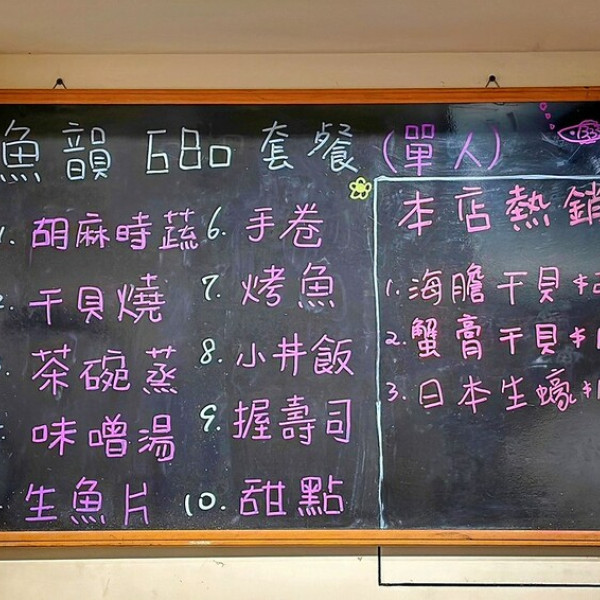 魚韻 680 套餐 (單人)
1. 胡麻時蔬
2. 干貝燒
茶碗蒸
味噌湯
生魚片
6. 手卷
7. 烤魚
8. 小丼飯
9. 握壽司
10. 甜點
本店熱銷
1. 海膽干貝 $
2. 蟹膏干貝 $
3. 日本生蠔 $